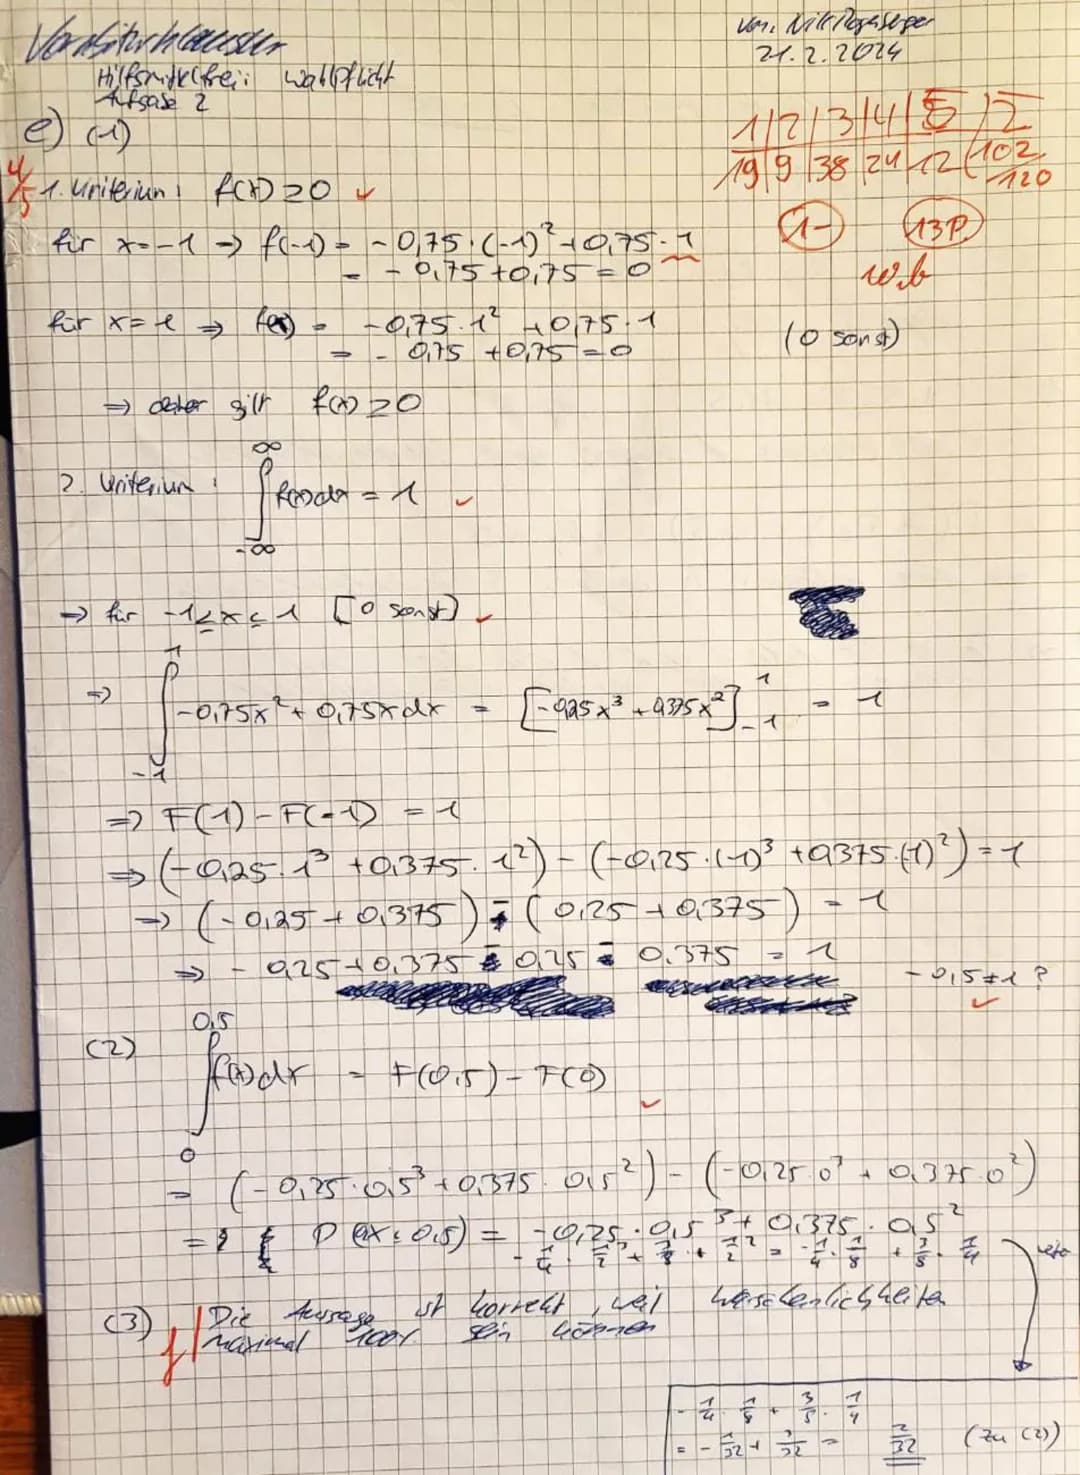 Vorabiturklausur
21.2.2024
Hilfsmittelfrei: Wahlpflicht
Aufgabe 2
1 | 2 | 3 | 4 | 5 | Σ
19 | 9 | 38 | 24 | 12 | 102/120
1- 13P.
e) (1)
4/5
1. Kriterium: f(x) ≥ 0 ✓
für x=-1 → f(-1) = -0,75·(-1)²+0,75·1
= -0,75+0,75=0
für x=1 ⇒ f(x) = -0,75·1²+0,75·1
= -0,75+0,75=0
(0 sonst)
⇒ daher gilt f(x) ≥ 0
2. Kriterium: ∫_{-∞}^{∞} f(x)dx = 1 ✓
⇒ für -1≤x≤1 [0 sonst] ✓
⇒ ∫_{-1}^{1} -0,75x²+0,75x dx = [-0,25x³+0,375x²]_{-1}^{1} = 1
⇒ F(1)-F(-1) = 1
⇒ (-0,25·1³+0,375·1²)-(-0,25·(-1)³+0,375·(-1)²)=1
⇒ (-0,25+0,375)-(0,25+0,375) = 1
⇒ -0,25+0,375-0,25-0,375 = 1
-0,5≠1? ✓
(2) ∫_{0}^{0,5} f(x)dx = F(0,5)-F(0) ✓
= (-0,25·0,5³+0,375·0,5²)-(-0,25·0³+0,375·0²)
= -0,25·0,5³+0,375·0,5²
= -1/4·1/8+3/8·1/4
(3) f Die Aussage ist korrekt, weil Wahrscheinlichkeiten
maximal 100% sein können
-1/4·1/8+3/8·1/4
= -1/32+3/32 = 2/32 (zu (2))